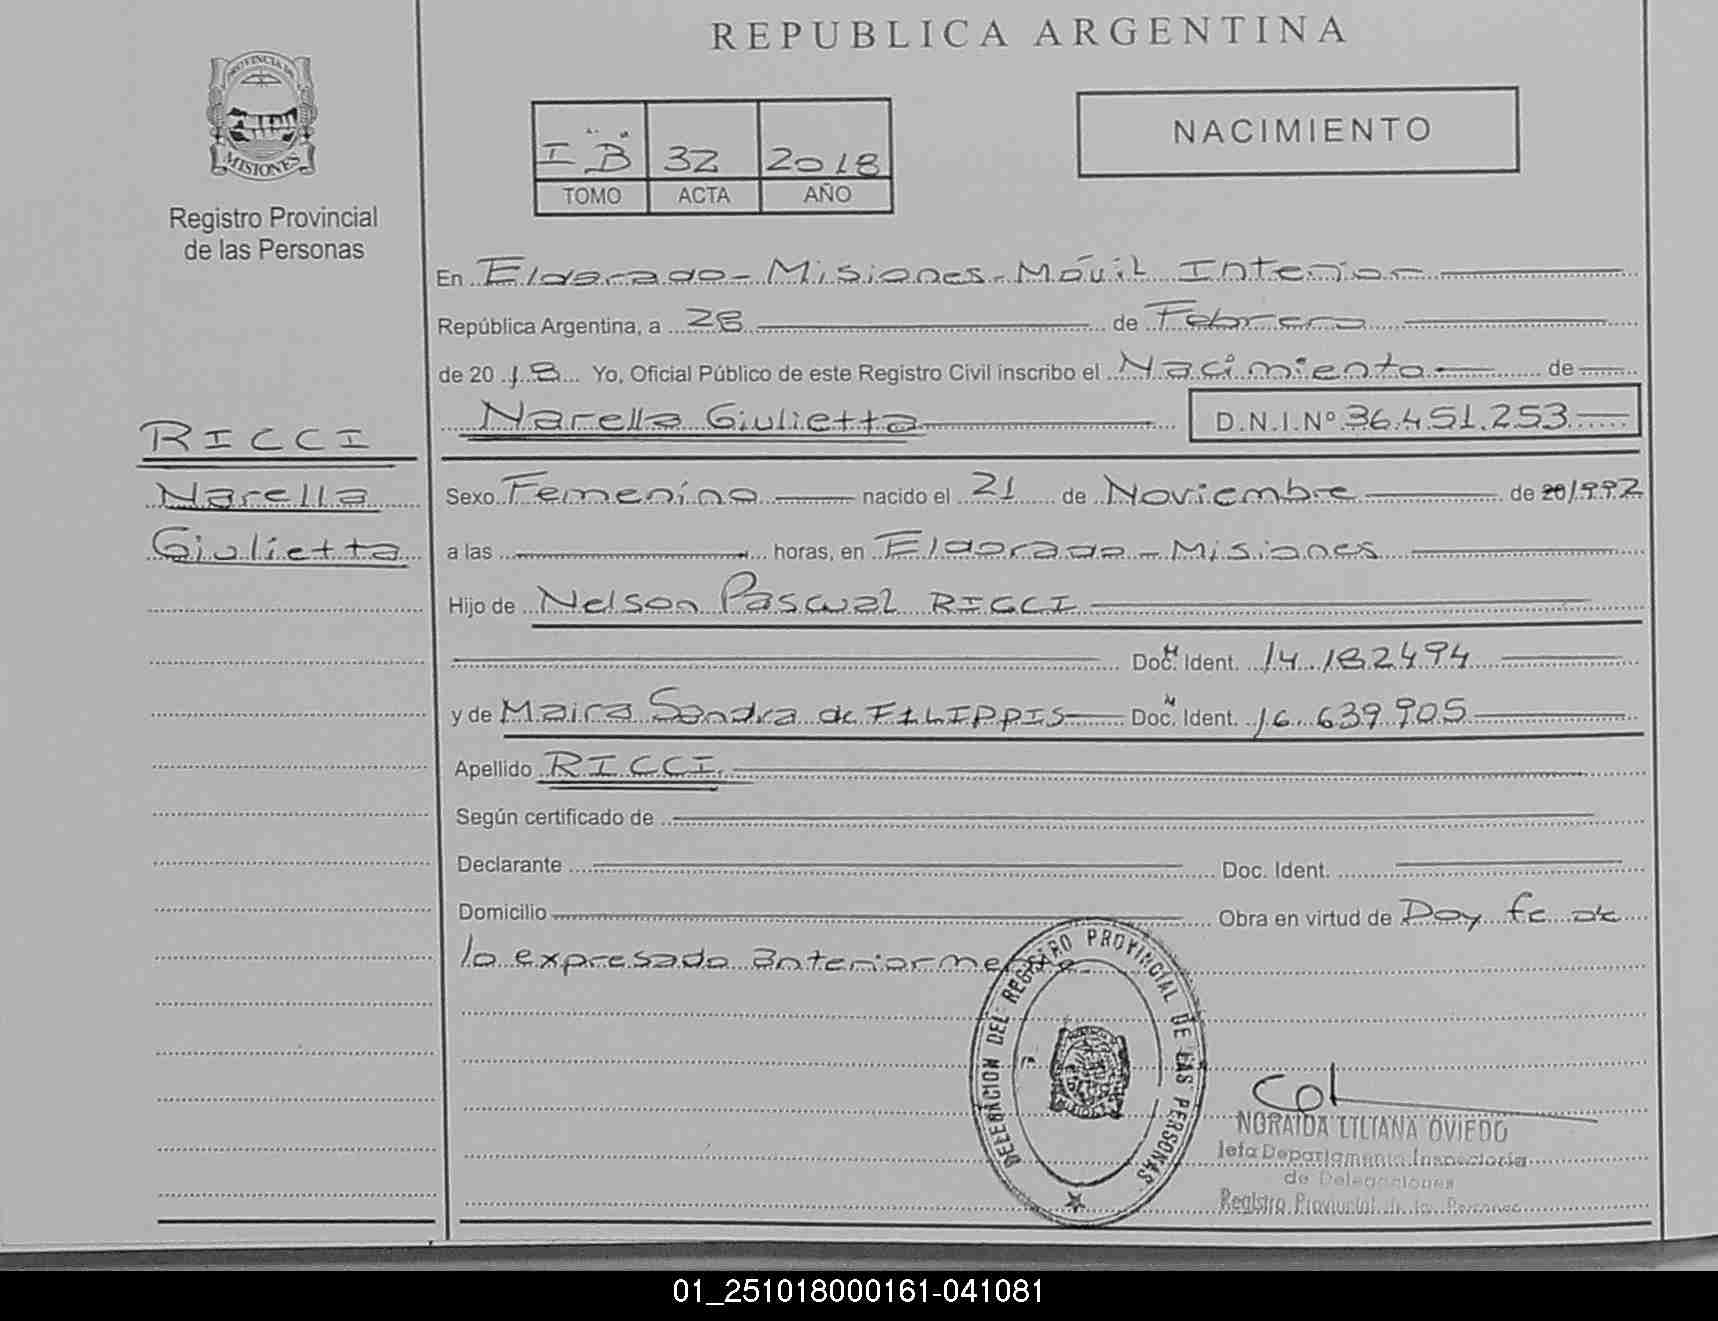 REPUBLICA ARGENTINA
PROVINCIA DE
MISIONES
Registro Provincial
de las Personas
I "B" 32 2018
TOMO ACTA AÑO
NACIMIENTO
En Eldorado - Misiones - Móvil Interior
República Argentina, a 28 de Febrero
de 2018 Yo, Oficial Público de este Registro Civil inscribo el Nacimiento de
Narella Giulietta D.N.I.Nº 36.451.253
RICCI
Narella
Giulietta
Sexo Femenino nacido el 21 de Noviembre de 20/1992
a las horas, en Eldorado - Misiones
Hijo de Nelson Pascual RICCI
Doc. Ident. M 14.182494
y de Maira Sandra de FILIPPIS Doc. Ident. M 16.639.905
Apellido RICCI
Según certificado de
Declarante Doc. Ident.
Domicilio Obra en virtud de Doy fe de
lo expresado anteriormente
DELEGACION DEL REGISTRO PROVINCIAL DE LAS PERSONAS
NORAIDA LILIANA OVIEDO
Jefa Departamento Inspectoría
de Delegaciones
Registro Provincial de las Personas
01_251018000161-041081